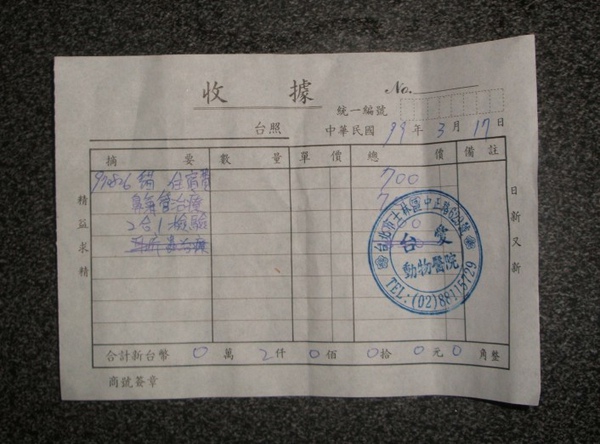 收據
No.
統一編號
台照 中華民國 99 年 3 月 17 日
摘要 數量 單價 總價 備註
住宿費 700
治療 7
2合1檢驗 0
精益求精
日新又新
台北市士林區中正路
台愛
動物醫院
TEL:(02)88115729
合計新台幣 0 萬 2 仟 0 佰 0 拾 0 元 0 角整
商號簽章